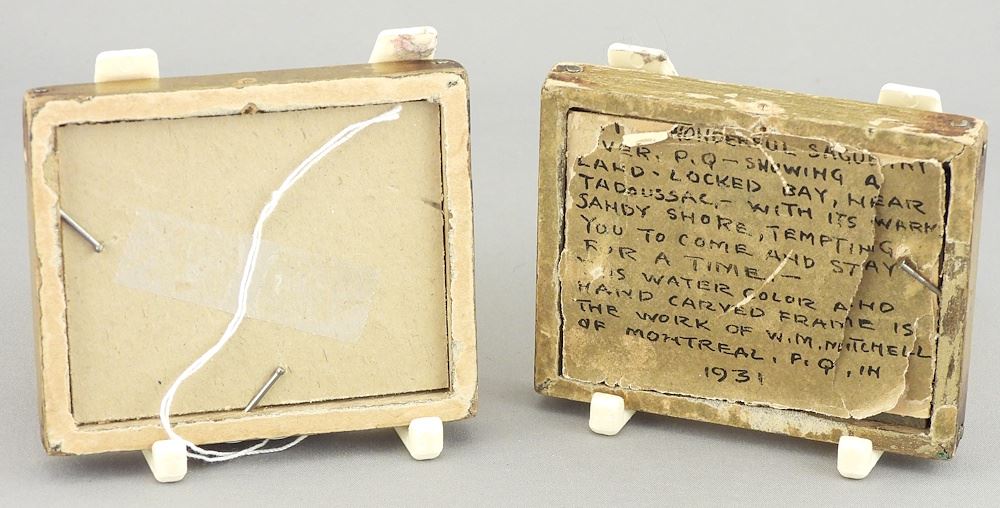 WONDERFUL SAGUENAY
VER. P.Q - SHOWING A
LAND-LOCKED BAY, NEAR
TADOUSSAC,- WITH ITS WARM
SANDY SHORE, TEMPTING
YOU TO COME AND STAY
FOR A TIME. -
IS WATER COLOR AND
HAND CARVED FRAME IS
THE WORK OF W.M. MITCHELL
OF MONTREAL, P.Q, IN
1931